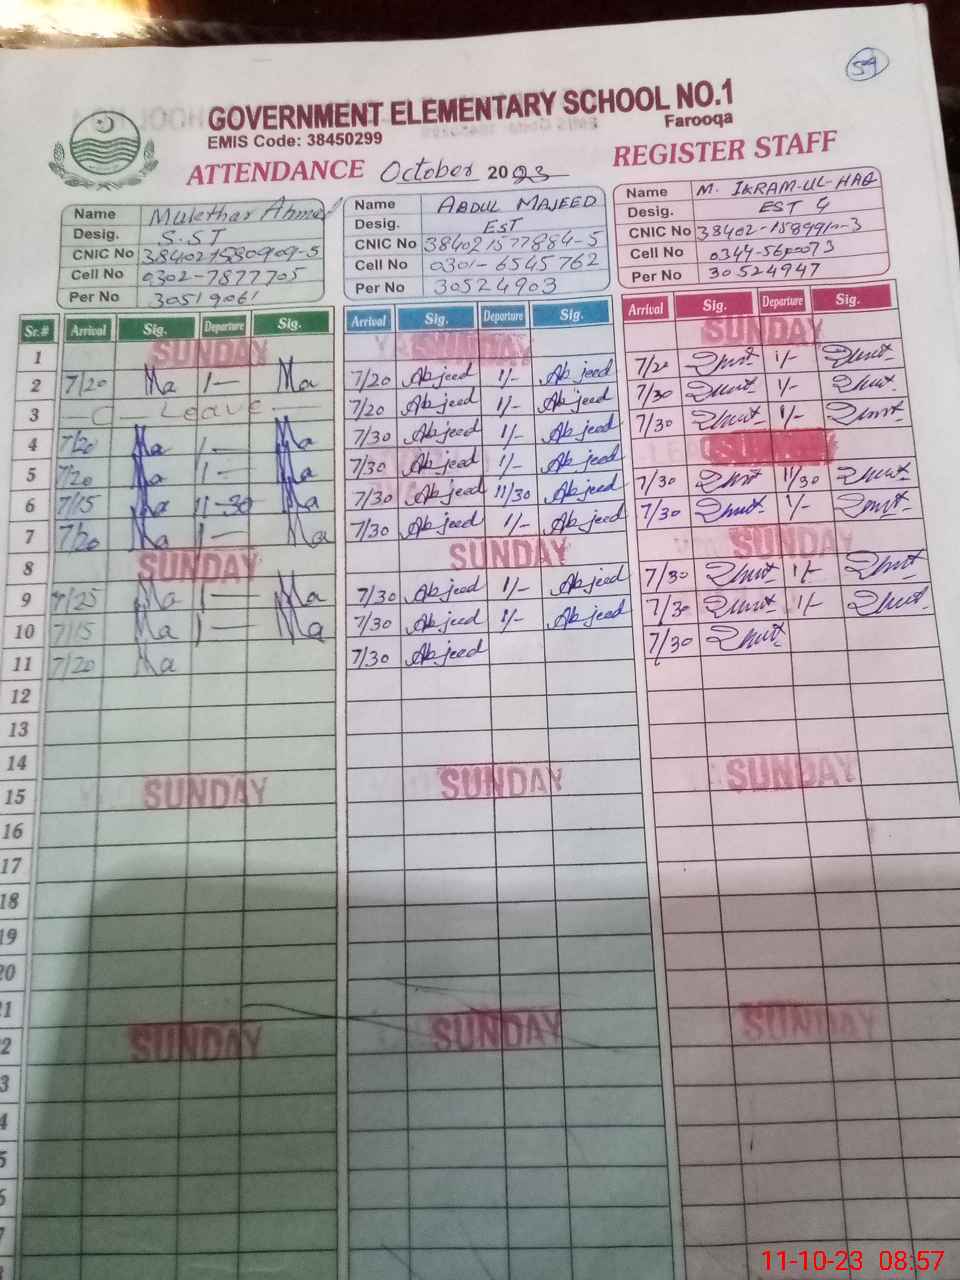 59
GOVERNMENT ELEMENTARY SCHOOL NO.1
EMIS Code: 38450299
Farooqa
ATTENDANCE October 2023 REGISTER STAFF
Name Mukhtar Ahmed
Desig. S.ST
CNIC No
Cell No 0302-7877705
Per No 30519061
Name ABDUL MAJEED
Desig. EST
CNIC No 384021577884-5
Cell No 0301-6545762
Per No 30524903
Name M. IKRAM-UL-HAQ
Desig. EST
CNIC No
Cell No
Per No 30524947
Sr.# Arrival Sig. Departure Sig. Arrival Sig. Departure Sig. Arrival Sig. Departure Sig.
1 SUNDAY SUNDAY SUNDAY
2 7/20 Ma 1- Ma 7/20 Abjeed 1/- Abjeed 7/20 1/-
3 C- Leave 7/20 Abjeed 1/- Abjeed 7/30 1/-
4 7/20 Ma 1- Ma 7/30 Abjeed 1/- Abjeed 7/30 1/-
5 7/20 Ma 1- Ma 7/30 Abjeed 1/- Abjeed SUNDAY
6 7/15 Ma 11-30 Ma 7/30 Abjeed 11/30 Abjeed 7/30 11/30
7 7/20 Ma 1- Ma 7/30 Abjeed 1/- Abjeed 7/30 1/-
8 SUNDAY SUNDAY SUNDAY
9 7/25 Ma 1- Ma 7/30 Abjeed 1/- Abjeed 7/30 1/-
10 7/15 Ma 1- Ma 7/30 Abjeed 1/- Abjeed 7/30 1/-
11 7/20 Ma 7/30 Abjeed 7/30
12
13
14
15 SUNDAY SUNDAY SUNDAY
16
17
18
19
20
21
2 SUNDAY SUNDAY SUNDAY
3
4
5
6
7
11-10-23 08:57